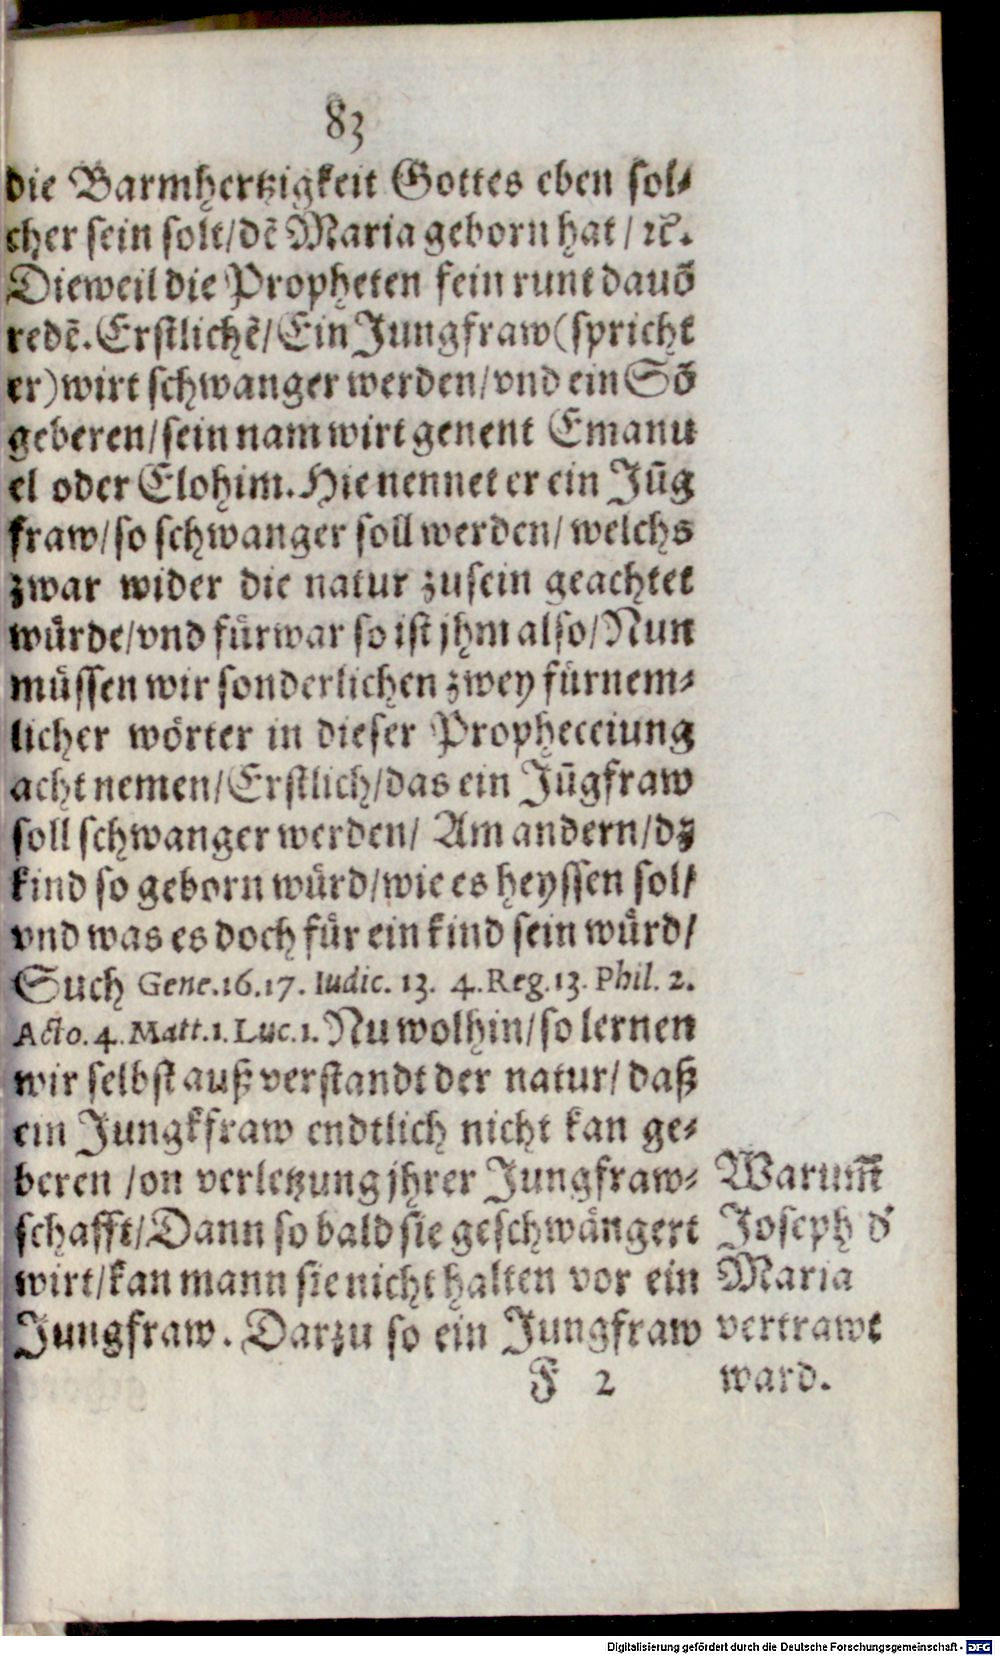 83
die Barmhertzigkeit Gottes eben sol-
cher sein solt/dē Maria geborn hat / ꝛc̄.
Dieweil die Propheten fein runt dauō
redē. Erstlichē/Ein Jungfraw(spricht
er)wirt schwanger werden/vnd ein Sō
geberen/sein nam wirt genent Emanu
el oder Elohim. Hie nennet er ein Jūg
fraw/so schwanger soll werden/ welchs
zwar wider die natur zusein geachtet
würde/vnd fürwar so ist jhm also/Nun
müssen wir sonderlichen zwey fürnem-
licher wörter in dieser Propheceiung
acht nemen/Erstlich/das ein Jūgfraw
soll schwanger werden/ Am andern/dz
kind so geborn würd/wie es heyssen sol/
vnd was es doch für ein kind sein würd/
Such Gene.16.17. Iudic. 13. 4.Reg.13. Phil. 2.
Acto. 4. Matt.1. Luc.1. Nu wolhin/so lernen
wir selbst auß verstandt der natur/ daß
ein Jungkfraw endtlich nicht kan ge-
beren /on verletzung jhrer Jungfraw-
schafft/Dann so bald sie geschwängert
wirt/kan mann sie nicht halten vor ein
Jungfraw. Darzu so ein Jungfraw
Warum̄
Joseph d'
Maria
vertrawt
ward.
F 2
Digitalisierung gefördert durch die Deutsche Forschungsgemeinschaft - DFG